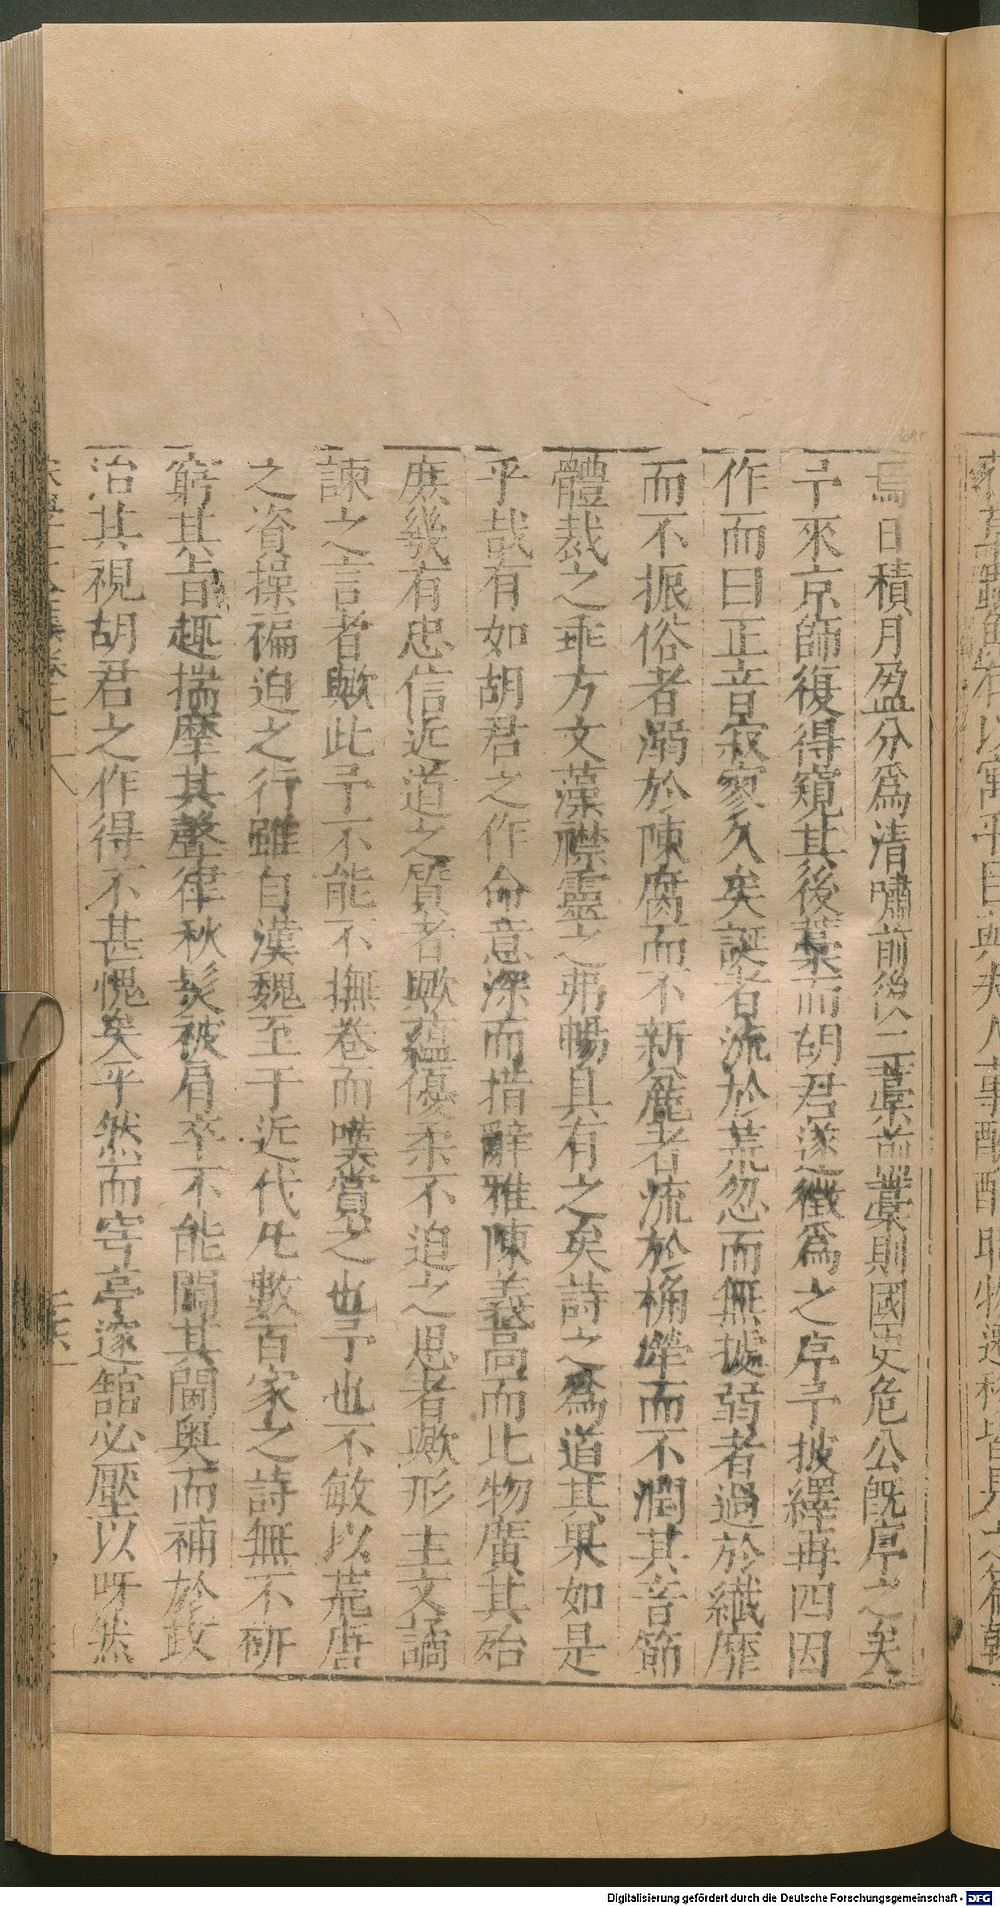 焉日積月盈分爲清嘯前後二藁前藁則國史危公旣序之矣
予來京師復得窺其後藁而胡君遂徵爲之序予披繹再四因
作而曰正音寂寥久矣誕者流於荒忽而無據弱者過於纖靡
而不振俗者溺於陳腐而不新麄者流於桷犖而不潤其音節
體裁之乖方文藻襟靈之弗暢具有之矣詩之爲道其果如是
乎哉有如胡君之作命意深而措辭雅陳義高而比物廣其殆
庶幾有忠信近道之質者歟蘊優柔不迫之思者歟形主文譎
諫之言者歟此予不能不撫卷而嘆賞之也予也不敏以荒唐
之資操褊迫之行雖自漢魏至于近代凡數百家之詩無不硏
窮其旨趣揣摩其聲律秋髮被肩卒不能闖其閫奥而補於政
治其視胡君之作得不甚愧矣乎然而穹亭邃舘必壓以呀然
Digitalisierung gefördert durch die Deutsche Forschungsgemeinschaft - DFG